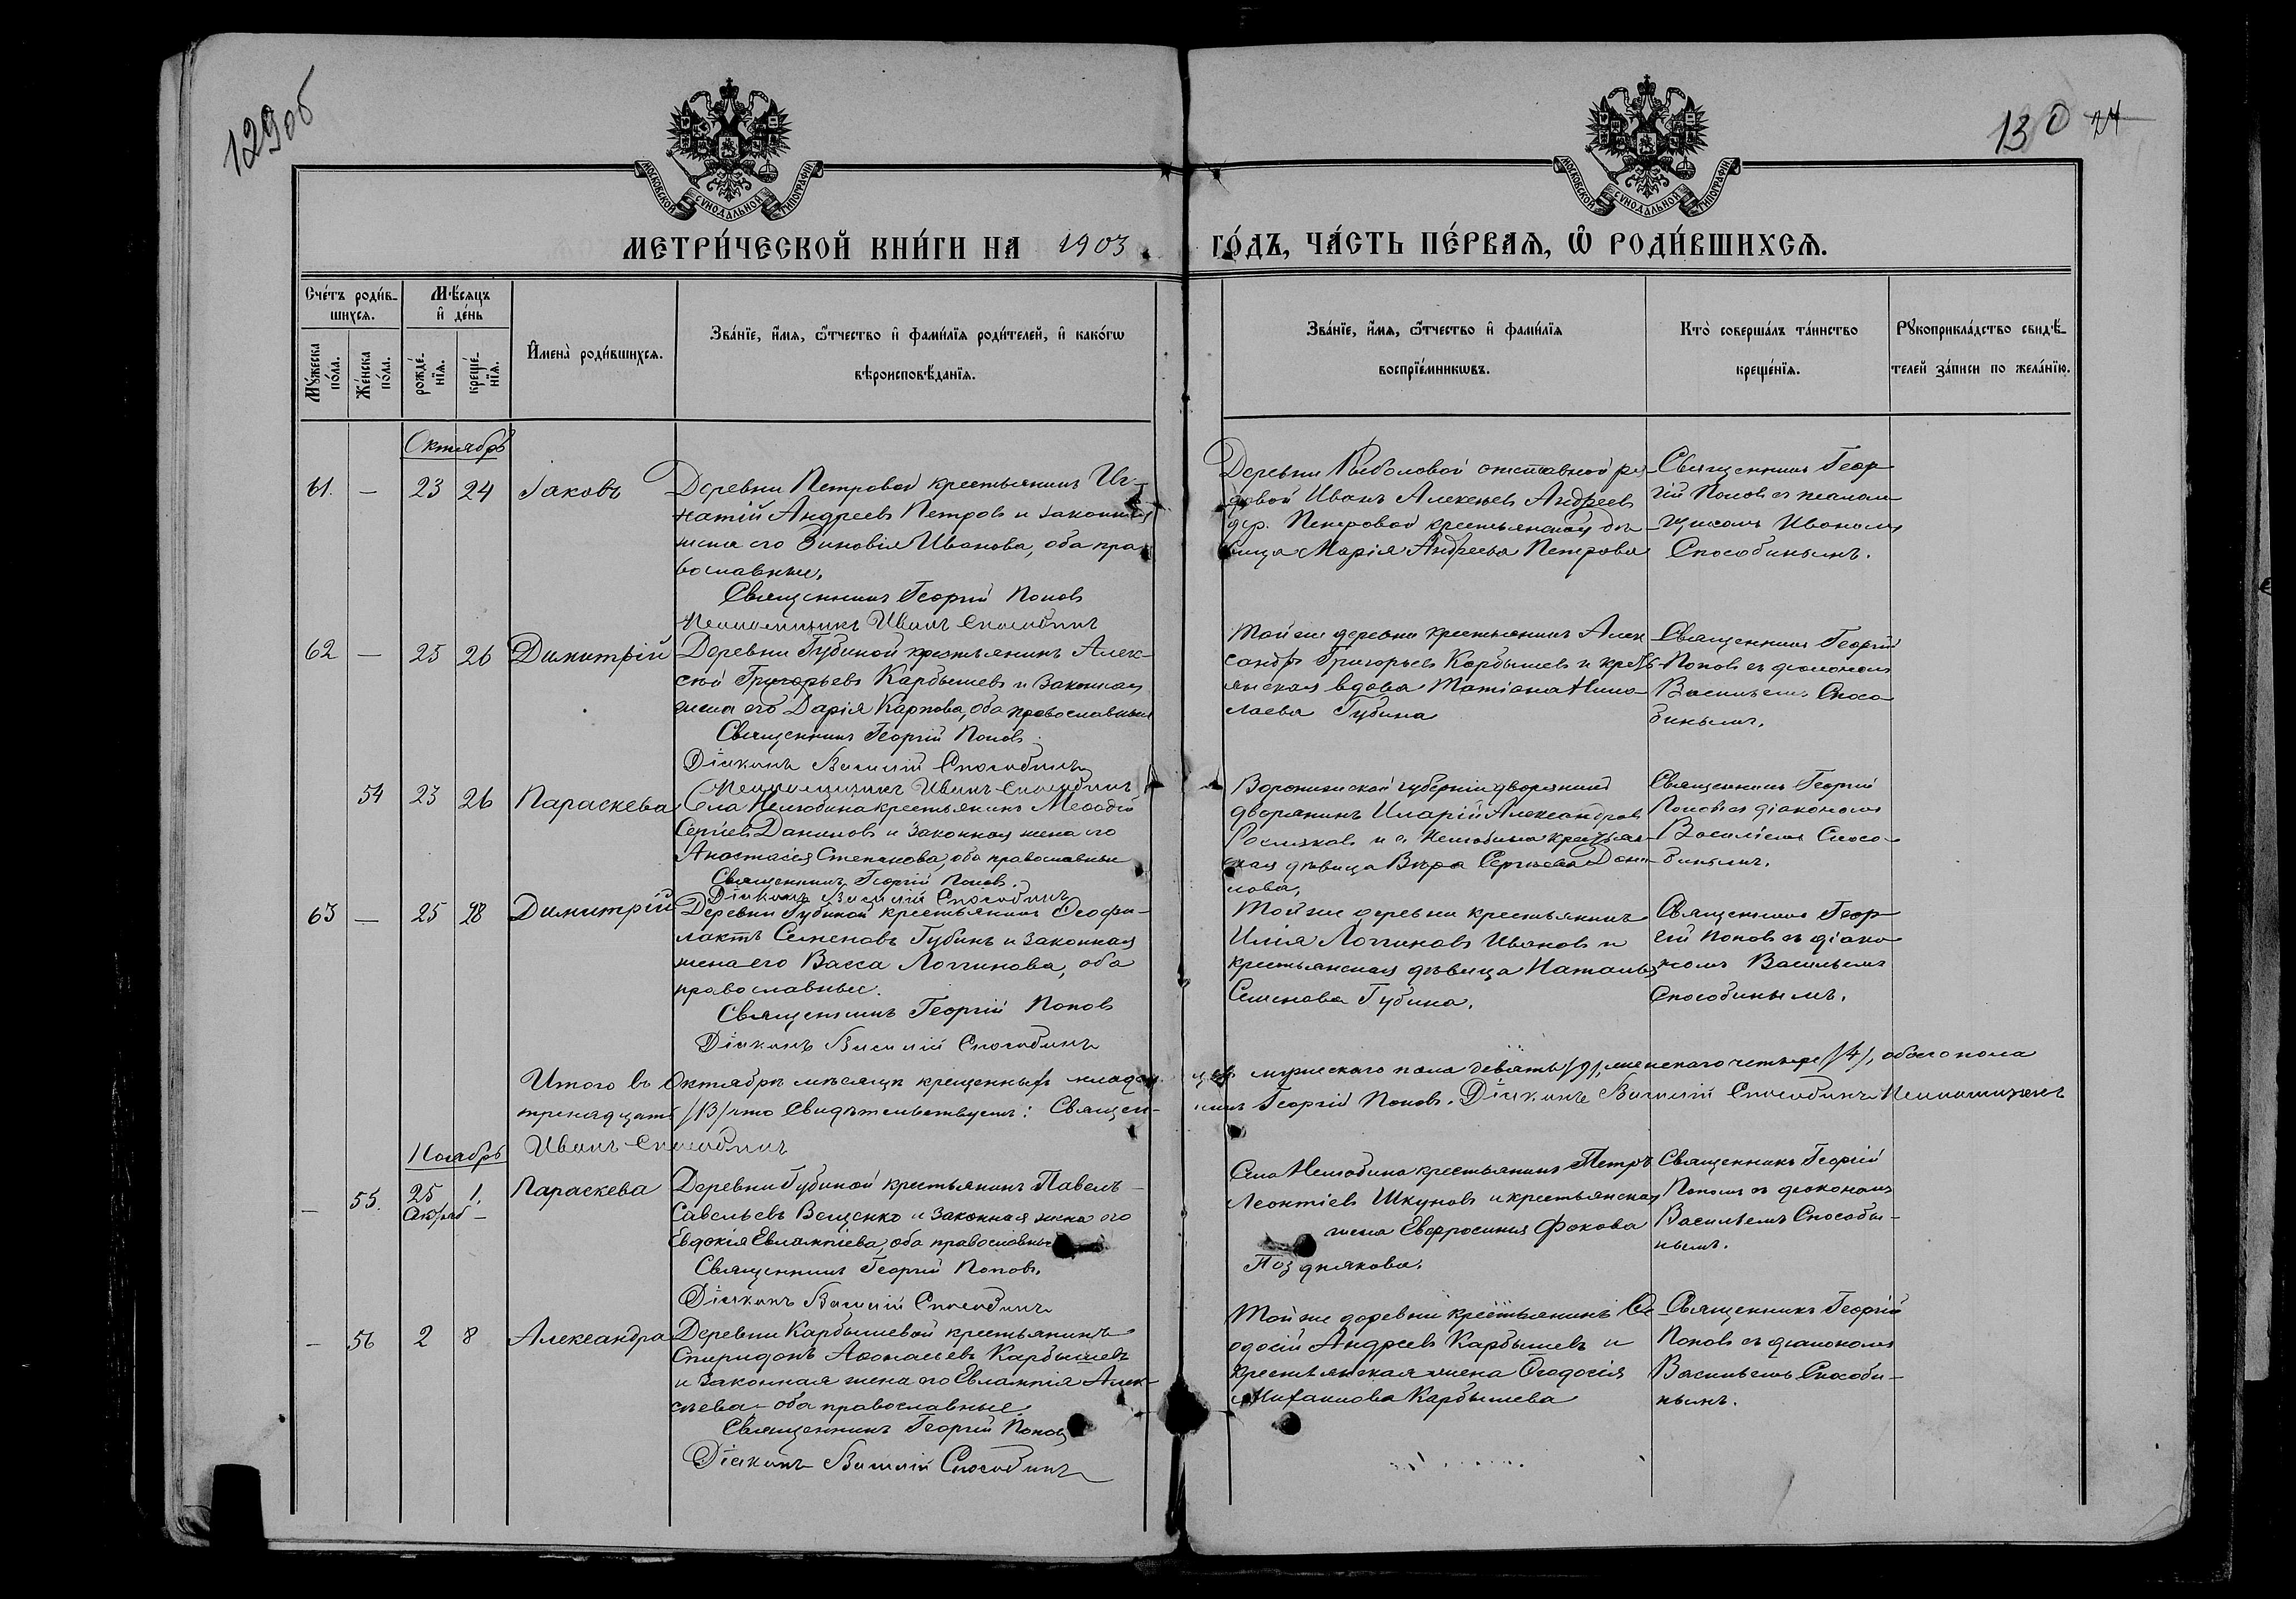 129 об
130 24
МОСКОВСКОЙ СѴНОДАЛЬНОЙ ТИПОГРАФІИ
МОСКОВСКОЙ СѴНОДАЛЬНОЙ ТИПОГРАФІИ
МЕТРИ́ЧЕСКОЙ КНИ́ГИ НА 1903 ГО́ДЪ, ЧА́СТЬ ПЕ́РВАЯ, Ѿ РОДИ́ВШИХСЯ.
Сче́тъ роди́в-
шихся.
Мꙋ́жеска
по́ла.
Же́нска
по́ла.
Мѣ́сяцъ
и҆ де́нь
рожде́-
нїя.
креще́-
нїя.
И҆мена̀ роди́вшихся.
Зва́нїе, и҆́мя, ѻ҆́тчество и҆ фами́лїя роди́телей, и҆ како́гѡ
вѣроисповѣ́данїя.
Зва́нїе, и҆́мя, ѻ҆́тчество и҆ фами́лїя
воспрїе́мникѡвъ.
Кто̀ соверша́лъ та́инство
креще́нїя.
Рꙋкоприкла́дство свидѣ́-
телей за́писи по жела́нїю.
Октябрь
61. — 23 24 Іаковъ
Деревни Петровой крестьянинъ Иг-
натій Андреевъ Петровъ и законная
жена его Зиновія Ивановa, оба пра-
вославные.
Священникъ Георгій Поповъ
Псаломщикъ Иванъ Способинъ
Деревни Рыболовой отставной ря-
довой Иванъ Алексѣевъ Андреевъ
дер. Петровой крестьянская дѣ-
вица Марія Андреева Петрова
Священникъ Геор-
гій Поповъ съ псалом-
щикомъ Иваномъ
Способинымъ.
62 — 25 26 Димитрій
Деревни Губиной крестьянинъ Алек-
сѣй Григорьевъ Карбышевъ и законная
жена его Дарія Карпова, оба православные
Священникъ Георгій Поповъ
Діаконъ Василій Способинъ
Псаломщикъ Иванъ Способинъ
Той же деревни крестьянинъ Алек-
сандръ Григорьевъ Карбышевъ и кресть-
янская вдова Татіана Нико-
лаева Губина
Священникъ Георгій
Поповъ съ діакономъ
Васильемъ Способ-
инымъ.
54 23 26 Параскева
Села Нелюбина крестьянинъ Меѳодій
Сергѣевъ Даниловъ и законная жена его
Анастасія Степанова, оба православные
Священникъ Георгій Поповъ.
Діаконъ Василій Способинъ
Воронежской губерніи дворянинъ
дворянинъ Иларій Александров
и с. Нелюбина крестьян-
ская дѣвица Вѣра Сергѣева Дани-
лова.
Священникъ Георгій
Поповъ съ діакономъ
Василіемъ Способ-
инымъ.
63 — 25 28 Димитрій
Деревни Губиной крестьянинъ Ѳеофи-
лактъ Семеновъ Губинъ и законная
жена его Васса Логгинова, оба
православные.
Священникъ Георгій Поповъ
Діаконъ Василій Способинъ
Той же деревни крестьянинъ
Илія Логгиновъ Ивановъ и
крестьянская дѣвица Наталья
Семенова Губина.
Священникъ Геор-
гій Поповъ съ діако-
номъ Васильемъ
Способинымъ.
Итого въ Октябрѣ мѣсяцѣ крещенныхъ младен-цевъ мужескаго пола девять /9/, женскаго четыре /4/, обоего пола
тринадцать /13/ что свидѣтельствуемъ: Священ-никъ Георгій Поповъ. Діаконъ Василій Способинъ Псаломщикъ
Иванъ Способинъ
Ноябрь
— 55. 25 Октяб 1. Параскева
Деревни Губиной крестьянинъ Павелъ
Савельевъ Вещенко и законная жена его
Евдокія Евлампіева, оба православные
Священникъ Георгій Поповъ.
Діаконъ Василій Способинъ
Села Нелюбина крестьянинъ Петръ
Леонтіевъ Шкуновъ и крестьянская
жена Евфросинія Фокова
Позднякова.
Священникъ Георгій
Поповъ съ діакономъ
Васильемъ Способи-
нымъ.
— 56 2 8 Александра
Деревни Карбышевой крестьянинъ
Спиридонъ Аѳонасьевъ Карбышевъ
и законная жена его Евлампія Алек-
сѣева – оба православные
Священникъ Георгій Поповъ
Діаконъ Василій Способинъ
Той же деревни крестьянинъ Ѳе-
одосій Андреевъ Карбышевъ и
крестьянская жена Ѳеодосія
Михаилова Карбышева
Священникъ Георгій
Поповъ съ діакономъ
Васильемъ Способи-
нымъ.